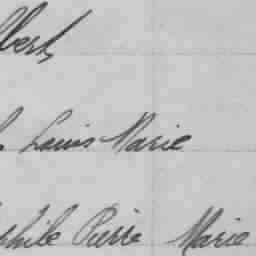 lbert
Louis Marie
phile Pierre Marie